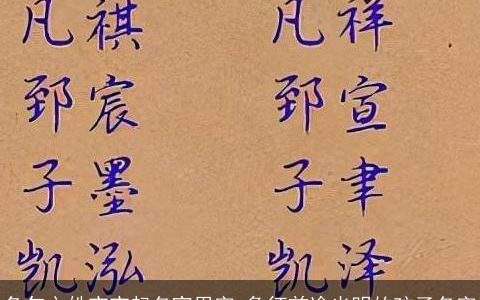 凡祺 凡祥
郅宸 郅宣
子墨 子聿
凯泓 凯泽